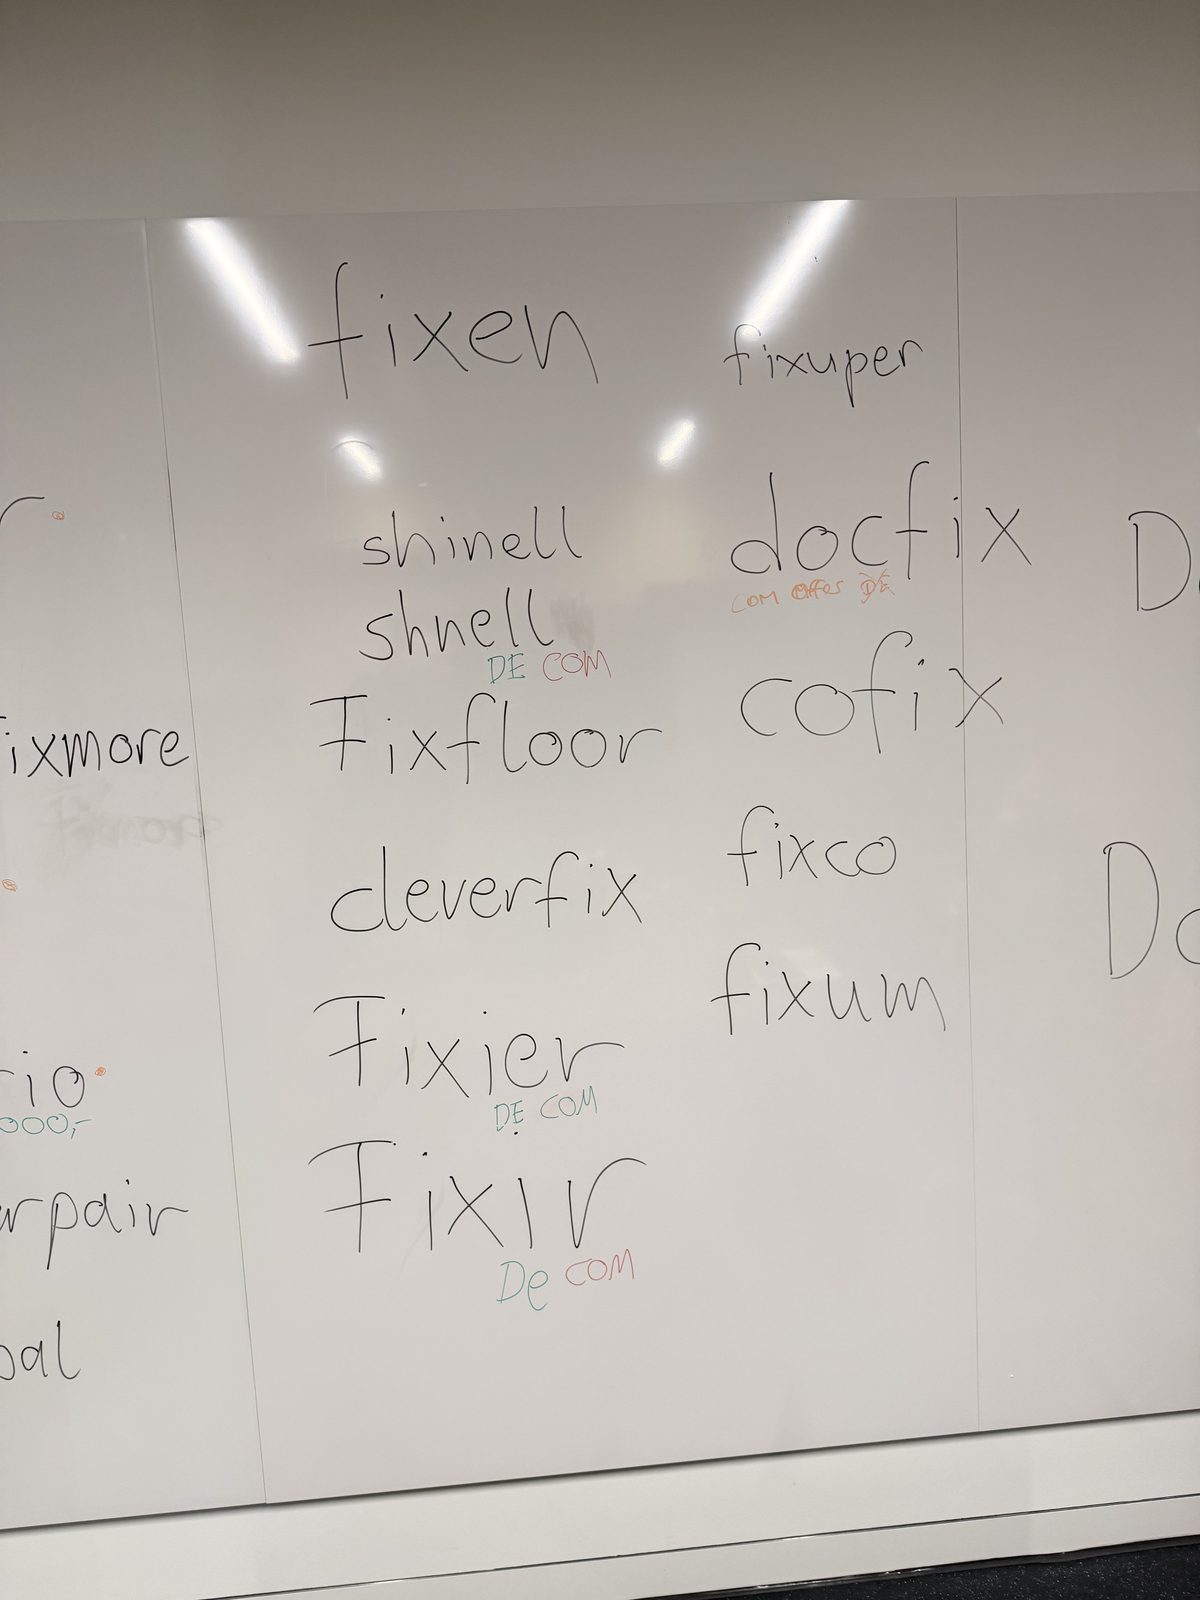 fixen
shinell
shnell
DE COM
Fixfloor
cleverfix
Fixier
DE COM
Fixir
De COM
fixuper
docfix
COM offer DE
cofix
fixco
fixum
fixmore
000,-